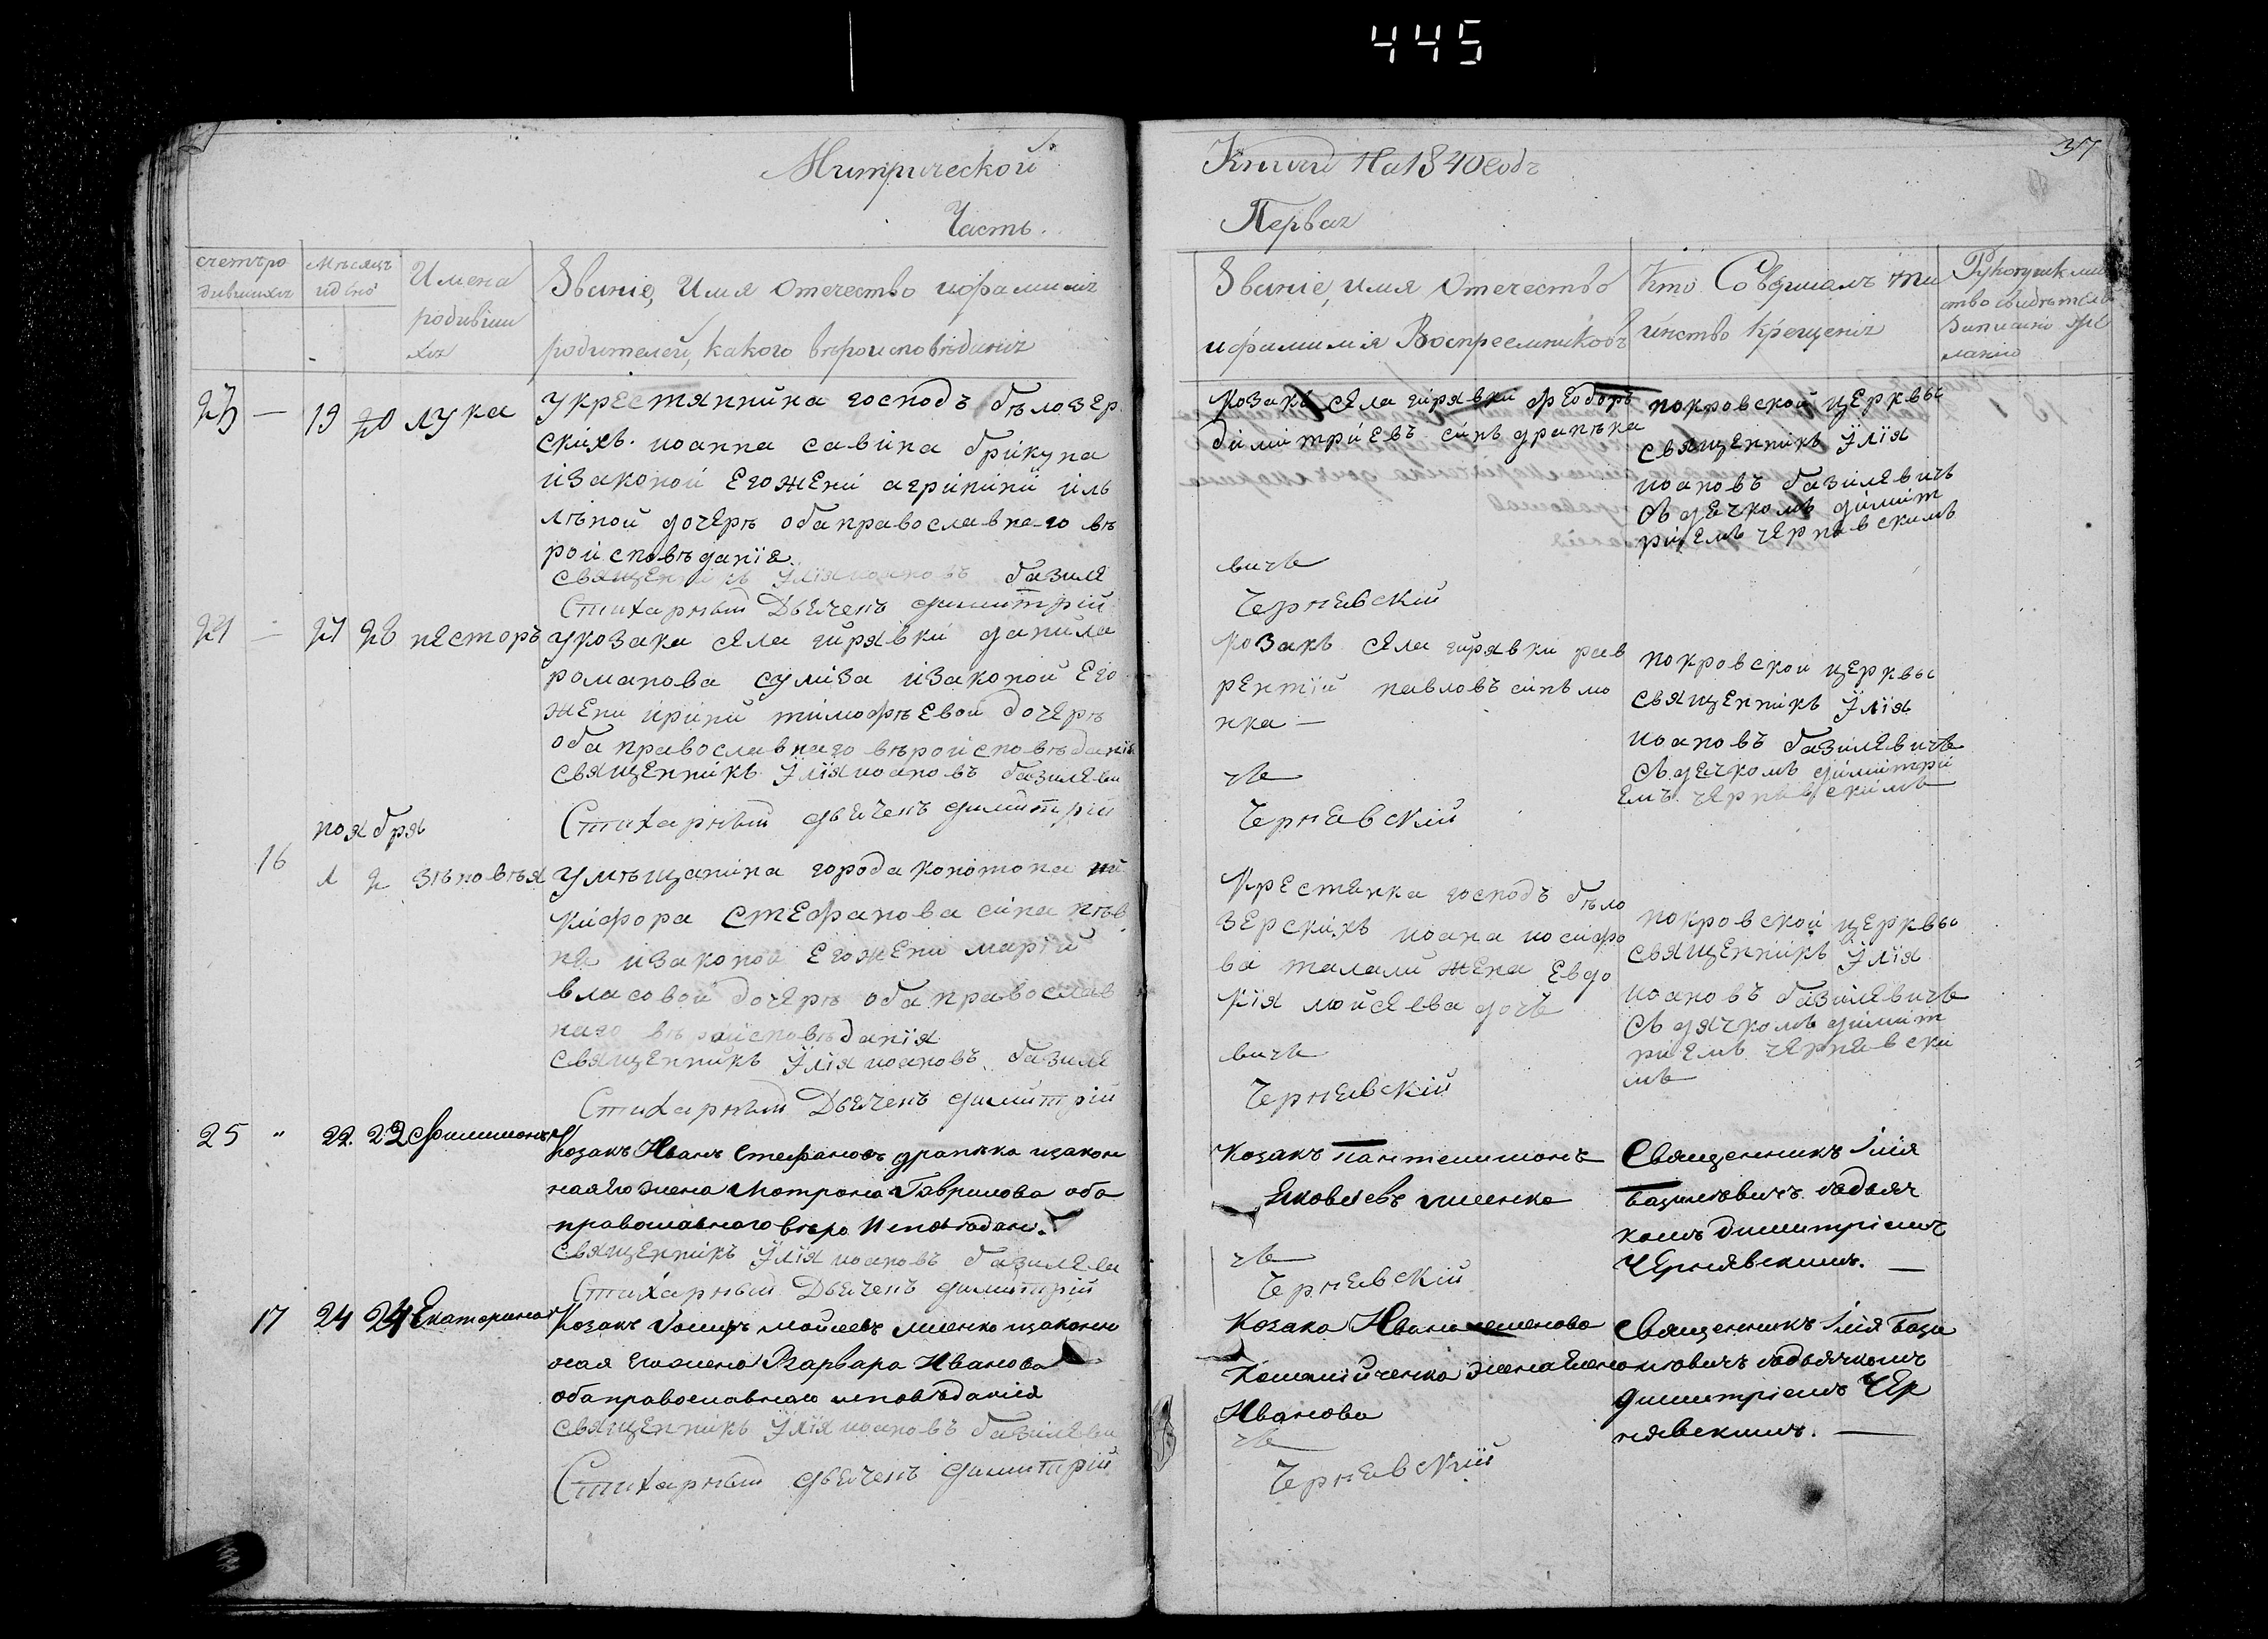 445
37
Митрической
Часть.
Книги На 1840 годъ
Первая
счетъ ро
дившихся
Мѣсяцъ
и день
Имена
родивши
хся
Званіе, Имя Отечество и фамилія
родителей, какого вѣроисповѣданія
Званіе, имя Отечество
и фамилия Воспреемниковъ
Кто Совершалъ таи
инство Крещенія
ство свидѣтел
Записано
23 — 19 20 лука
укрестяннина господъ бѣлозер
скихъ. иоанна савина брикуна
изаконой его жени агрипини
лѣной дочерѣ оба православнаго вѣ
роисповѣданїя.
священникъ Їлїя иоановъ базиле
Стихарный Дьячекъ димитрій
козакъ села гирявки феодоръ
димитриевъ синъ драпѣка
вичъ
Чернявскій
покровской церквы
священникъ Їлїя
иоановъ базилевичъ
съ дечкомъ димит
риемъ чернявскимъ
24 — 27 28 несторъ
укозака села гирявки данила
романова суміза изаконой его
жени ирини тимофѣевой дочерѣ
оба православнаго вѣроисповѣданїя
священникъ Їлїя иоановъ базилеви
Стихарный дьячекъ димитрій
козакъ села гирявки лав
рентїй павловъ синъ мо
нка —
чъ
Чернявскій
покровской церквы
священникъ Їлїя
иоановъ базилевичъ
съ дечкомъ димитри
емъ чернявскимъ
ноября
16 1 2 зѣновѣя
умѣщанина города конотопа ни
кифора стефанова сина
изаконой его жени марїи
власовой дочерѣ оба православ
наго вѣроисповѣданїя
священникъ Їлїя иоановъ базиле
Стихарный Дьячекъ димитрій
крестянка господъ бѣло
зерскихъ иоана иосифо
ва талали жена евдо
кїя мойсеева дочъ
вичъ
Чернявскій
покровской церквы
священникъ Їлїя
иоановъ базилевичъ
съ дячкомъ димит
риемъ чернявски
мъ
25 " 22. 22 Филимонъ
Козакъ Иванъ Стефановъ драпѣка изакон
ная его жена Мотрона Гаврилова оба
православнаго вѣро Исповѣдан.
священникъ Їлїя иоановъ базилеви
Стихарный Дьячекъ димитрій
Козакъ Пантелимонъ
Яковлевъ
чъ
Чернявскій
Священникъ Ілія
Базилевичъ здьяч
комъ димитріемъ
Чернявскимъ. —
17 24 24 Екатерина
Козакъ мойсеевъ изаконн
ная его жена Варвара Иванова
оба православнаго исповѣданія
священникъ Їлїя иоановъ базилеви
Стихарный дьячекъ димитрій
Козака Ивана семенова
жена
Иванова
чъ
Чернявскїй
Священникъ Ілія Бази
левичъ здьячкомъ
Димитріемъ Чер
нявскимъ. —